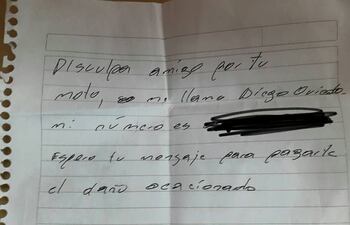 Disculpa amigo por tu
moto, mi llamo Diego Oviedo.
mi número es
Espero tu mensaje para pagarte
el daño ocacionado